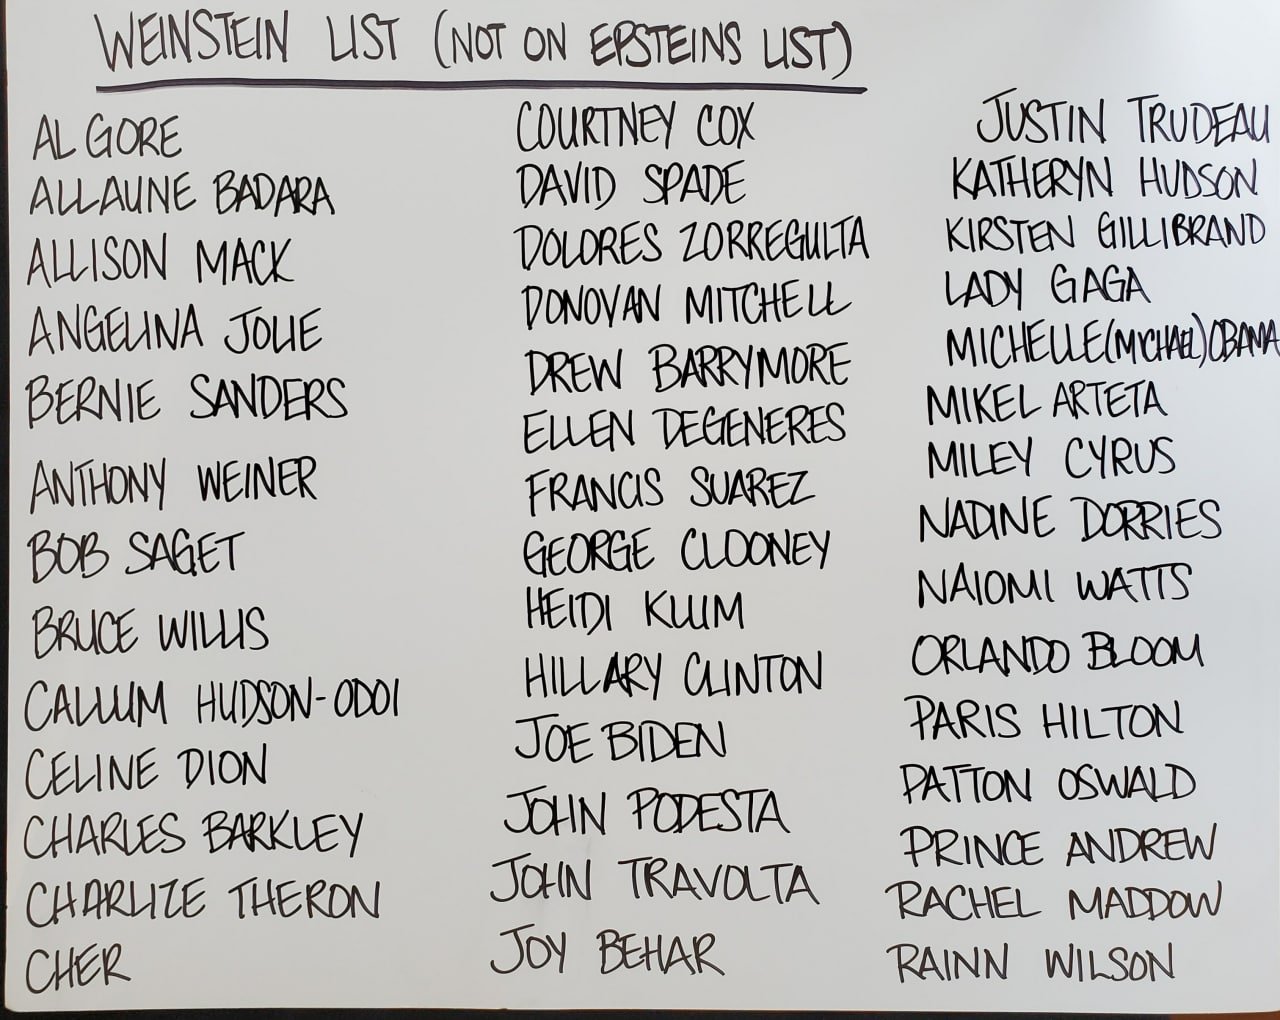 WEINSTEIN LIST (NOT ON EPSTEINS LIST)
AL GORE
ALLAUNE BADARA
ALLISON MACK
ANGELINA JOLIE
BERNIE SANDERS
ANTHONY WEINER
BOB SAGET
BRUCE WILLIS
CALLUM HUDSON-ODOI
CELINE DION
CHARLES BARKLEY
CHARLIZE THERON
CHER
COURTNEY COX
DAVID SPADE
DOLORES ZORREGULTA
DONOVAN MITCHELL
DREW BARRYMORE
ELLEN DEGENERES
FRANCIS SUAREZ
GEORGE CLOONEY
HEIDI KLUM
HILLARY CLINTON
JOE BIDEN
JOHN PODESTA
JOHN TRAVOLTA
JOY BEHAR
JUSTIN TRUDEAU
KATHERYN HUDSON
KIRSTEN GILLIBRAND
LADY GAGA
MICHELLE(MICHAEL)OBAMA
MIKEL ARTETA
MILEY CYRUS
NADINE DORRIES
NAIOMI WATTS
ORLANDO BLOOM
PARIS HILTON
PATTON OSWALD
PRINCE ANDREW
RACHEL MADDOW
RAINN WILSON